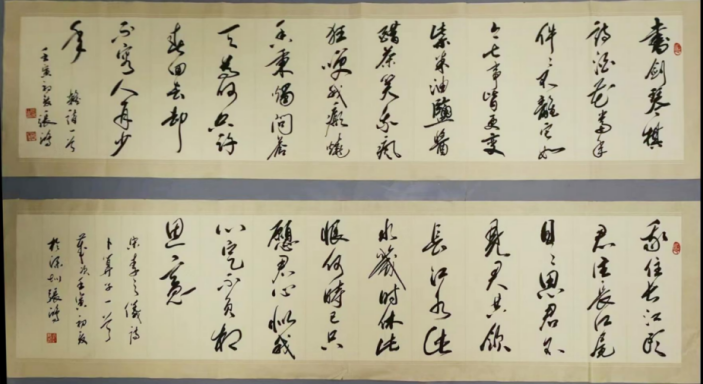 書劍琴棋
詩酒花當年
件々不離它如
今七事皆更變
柴米油鹽醬
醋茶笑我瘋
狂嘆我癡燒
香秉燭問蒼
天為何只許
春回去却
不容人再少
年
詩一首
壬寅初夏張鴻
我住長江頭
君住長江尾
日々思君不
見君共飲
長江水此
水幾時休此
恨何時已只
願君心似我
心定不負相
思意
宋李之儀詩
卜算子一首
歲次壬寅初夏
於深圳張鴻